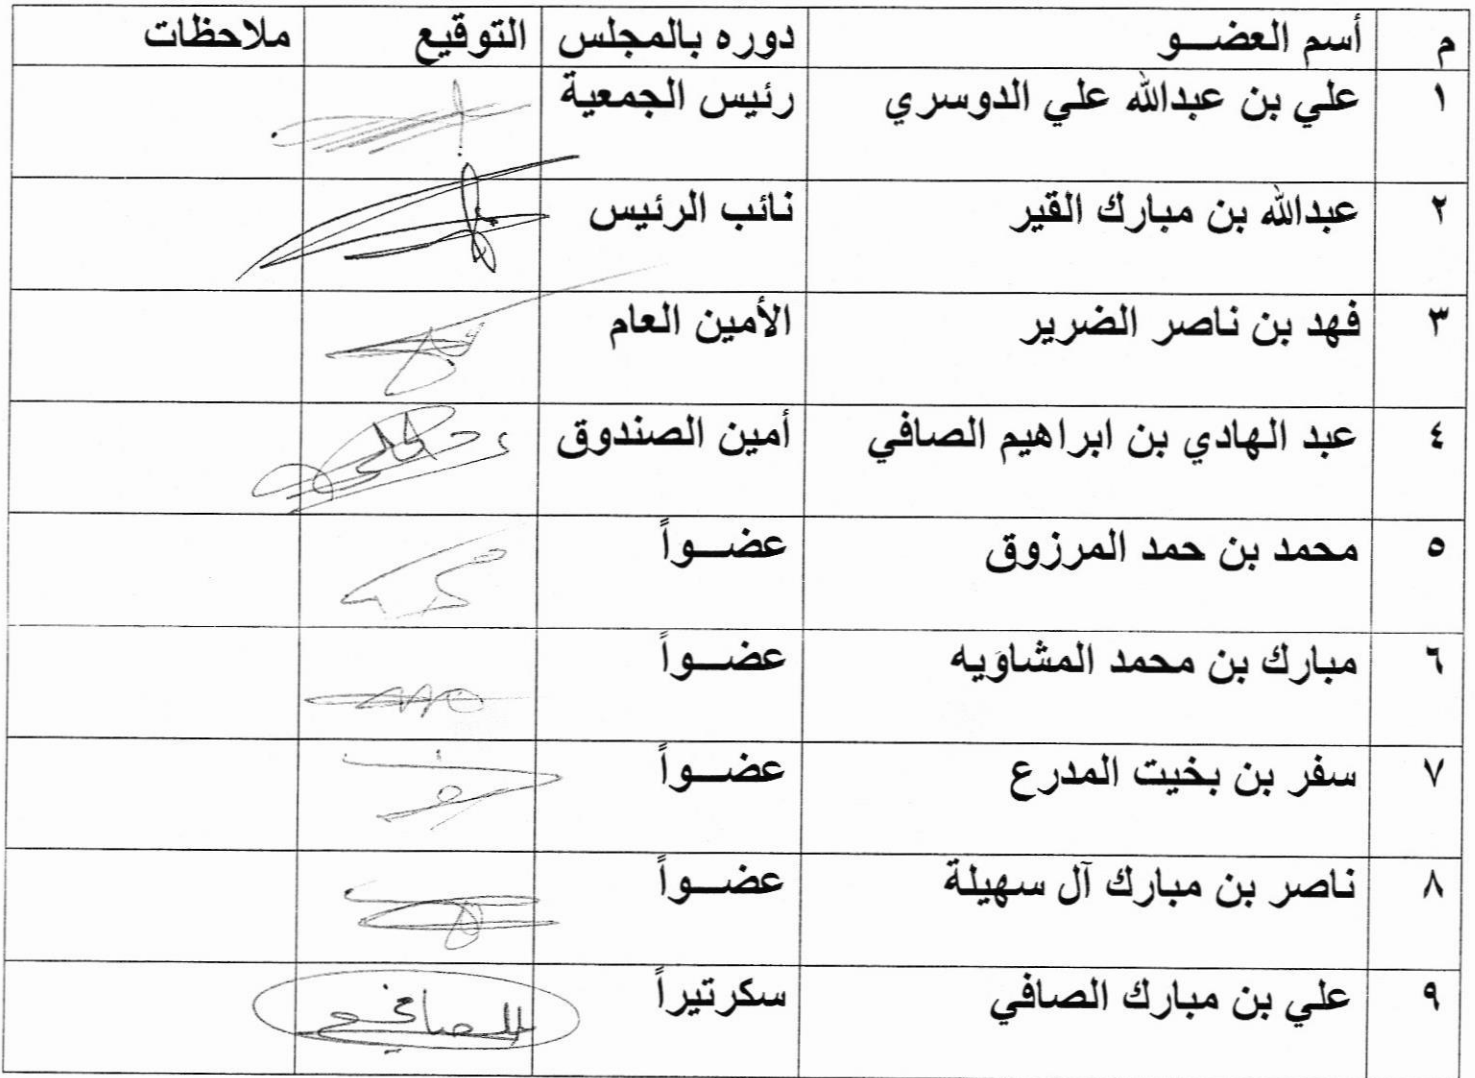 م أسم العضـــو دوره بالمجلس التوقيع ملاحظات
١ علي بن عبدالله علي الدوسري رئيس الجمعية
٢ عبدالله بن مبارك القير نائب الرئيس
٣ فهد بن ناصر الضرير الأمين العام
٤ عبد الهادي بن ابراهيم الصافي أمين الصندوق
٥ محمد بن حمد المرزوق عضـــواً
٦ مبارك بن محمد المشاوَيه عضـــواً
٧ سفر بن بخيت المدرع عضـــواً
٨ ناصر بن مبارك آل سهيلة عضـــواً
٩ علي بن مبارك الصافي سكرتيراً